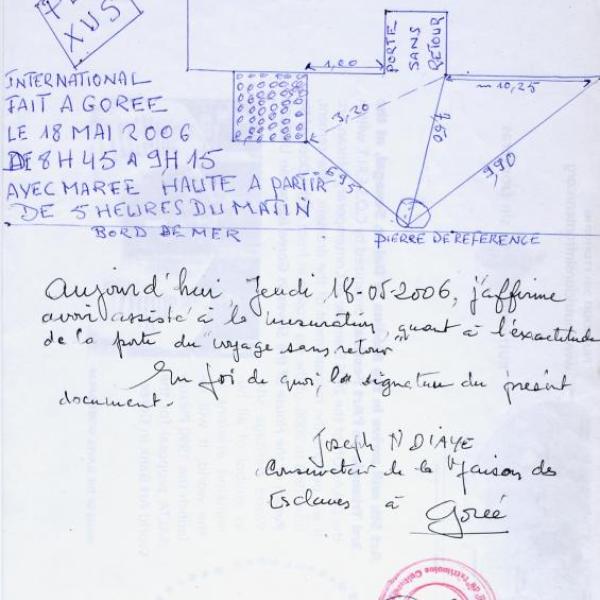 XUS
PORTE SANS RETOUR
1,00
10,25
3,20
760
990
695
INTERNATIONAL
FAIT A GOREE
LE 18 MAI 2006
DE 8H45 A 9H15
AVEC MAREE HAUTE A PARTIR
DE 5 HEURES DU MATIN
BORD DE MER
PIERRE DE REFERENCE
Aujourd'hui, Jeudi, 18-05-2006, j'affirme
avoir assisté à la mesuration, quant à l'exactitude
de la porte du "voyage sans retour"
En foi de quoi, la signature du présent
document.
Joseph N'DIAYE
Conservateur de la Maison des
Esclaves à Gorée